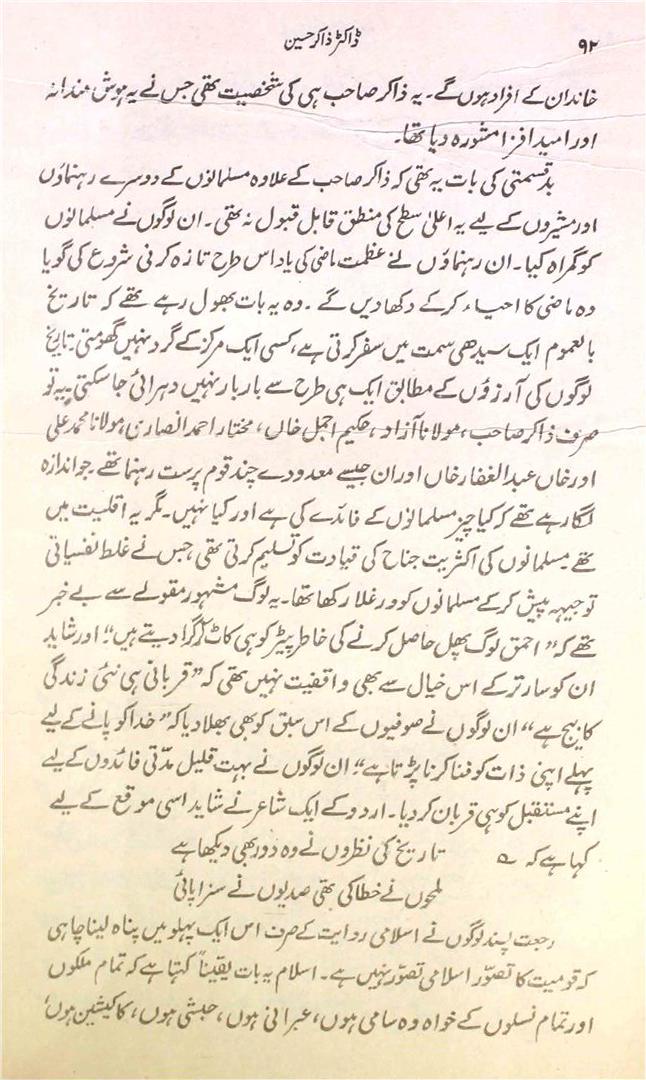 ۹۲
ڈاکٹر ذاکر حسین
خاندان کے افراد ہوں گے۔ یہ ذاکر صاحب ہی کی شخصیت تھی جس نے یہ ہوش مندانہ
اور امید افزا مشورہ دیا تھا۔
بدقسمتی کی بات یہ تھی کہ ذاکر صاحب کے علاوہ مسلمانوں کے دوسرے رہنماؤں
اور مشیروں کے لیے یہ اعلیٰ سطح کی منطق قابل قبول نہ تھی۔ ان لوگوں نے مسلمانوں
کو گمراہ کیا۔ ان رہنماؤں نے عظمت ماضی کی یاد اس طرح تازہ کرنی شروع کی گویا
وہ ماضی کا احیاء کر کے دکھا دیں گے۔ وہ یہ بات بھول رہے تھے کہ تاریخ
بالعموم ایک سیدھی سمت میں سفر کرتی ہے، کسی ایک مرکز کے گرد نہیں گھومتی۔ تاریخ
لوگوں کی آرزوؤں کے مطابق ایک ہی طرح سے بار بار نہیں دہرائی جاسکتی۔ یہ تو
صرف ذاکر صاحب، مولانا آزاد، حکیم اجمل خاں، مختار احمد انصاری، مولانا محمد علی
اور خاں عبد الغفار خاں اور ان جیسے معدودے چند قوم پرست رہنما تھے جو اندازہ
لگا رہے تھے کہ کیا چیز مسلمانوں کے فائدے کی ہے اور کیا نہیں۔ مگر یہ اقلیت میں
تھے۔ مسلمانوں کی اکثریت جناح کی قیادت کو تسلیم کرتی تھی، جس نے غلط نفسیاتی
توجیہہ پیش کر کے مسلمانوں کو ورغلا رکھا تھا۔ یہ لوگ مشہور مقولے سے بے خبر
تھے کہ ”احمق لوگ پھل حاصل کرنے کی خاطر پیڑ کو ہی کاٹ کر گرا دیتے ہیں“۔ اور شاید
ان کو سارتر کے اس خیال سے بھی واقفیت نہیں تھی کہ ”قربانی ہی نئی زندگی
کا بیج ہے“ ان لوگوں نے صوفیوں کے اس سبق کو بھی بھلا دیا کہ ”خدا کو پانے کے لیے
پہلے اپنی ذات کو فنا کرنا پڑتا ہے“۔ ان لوگوں نے بہت قلیل مدّتی فائدوں کے لیے
اپنے مستقبل کو ہی قربان کر دیا۔ اردو کے ایک شاعر نے شاید اسی موقع کے لیے
کہا ہے کہ ؎ تاریخ کی نظروں نے وہ دور بھی دیکھا ہے
لمحوں نے خطا کی تھی صدیوں نے سزا پائی
رجعت پسند لوگوں نے اسلامی روایت کے صرف اس ایک پہلو میں پناہ لینا چاہی
کہ قومیت کا تصوّر اسلامی تصوّر نہیں ہے۔ اسلام یہ بات یقیناً کہتا ہے کہ تمام ملکوں
اور تمام نسلوں کے خواہ وہ سامی ہوں، عبرانی ہوں، حبشی ہوں، کاکیشین ہوں،